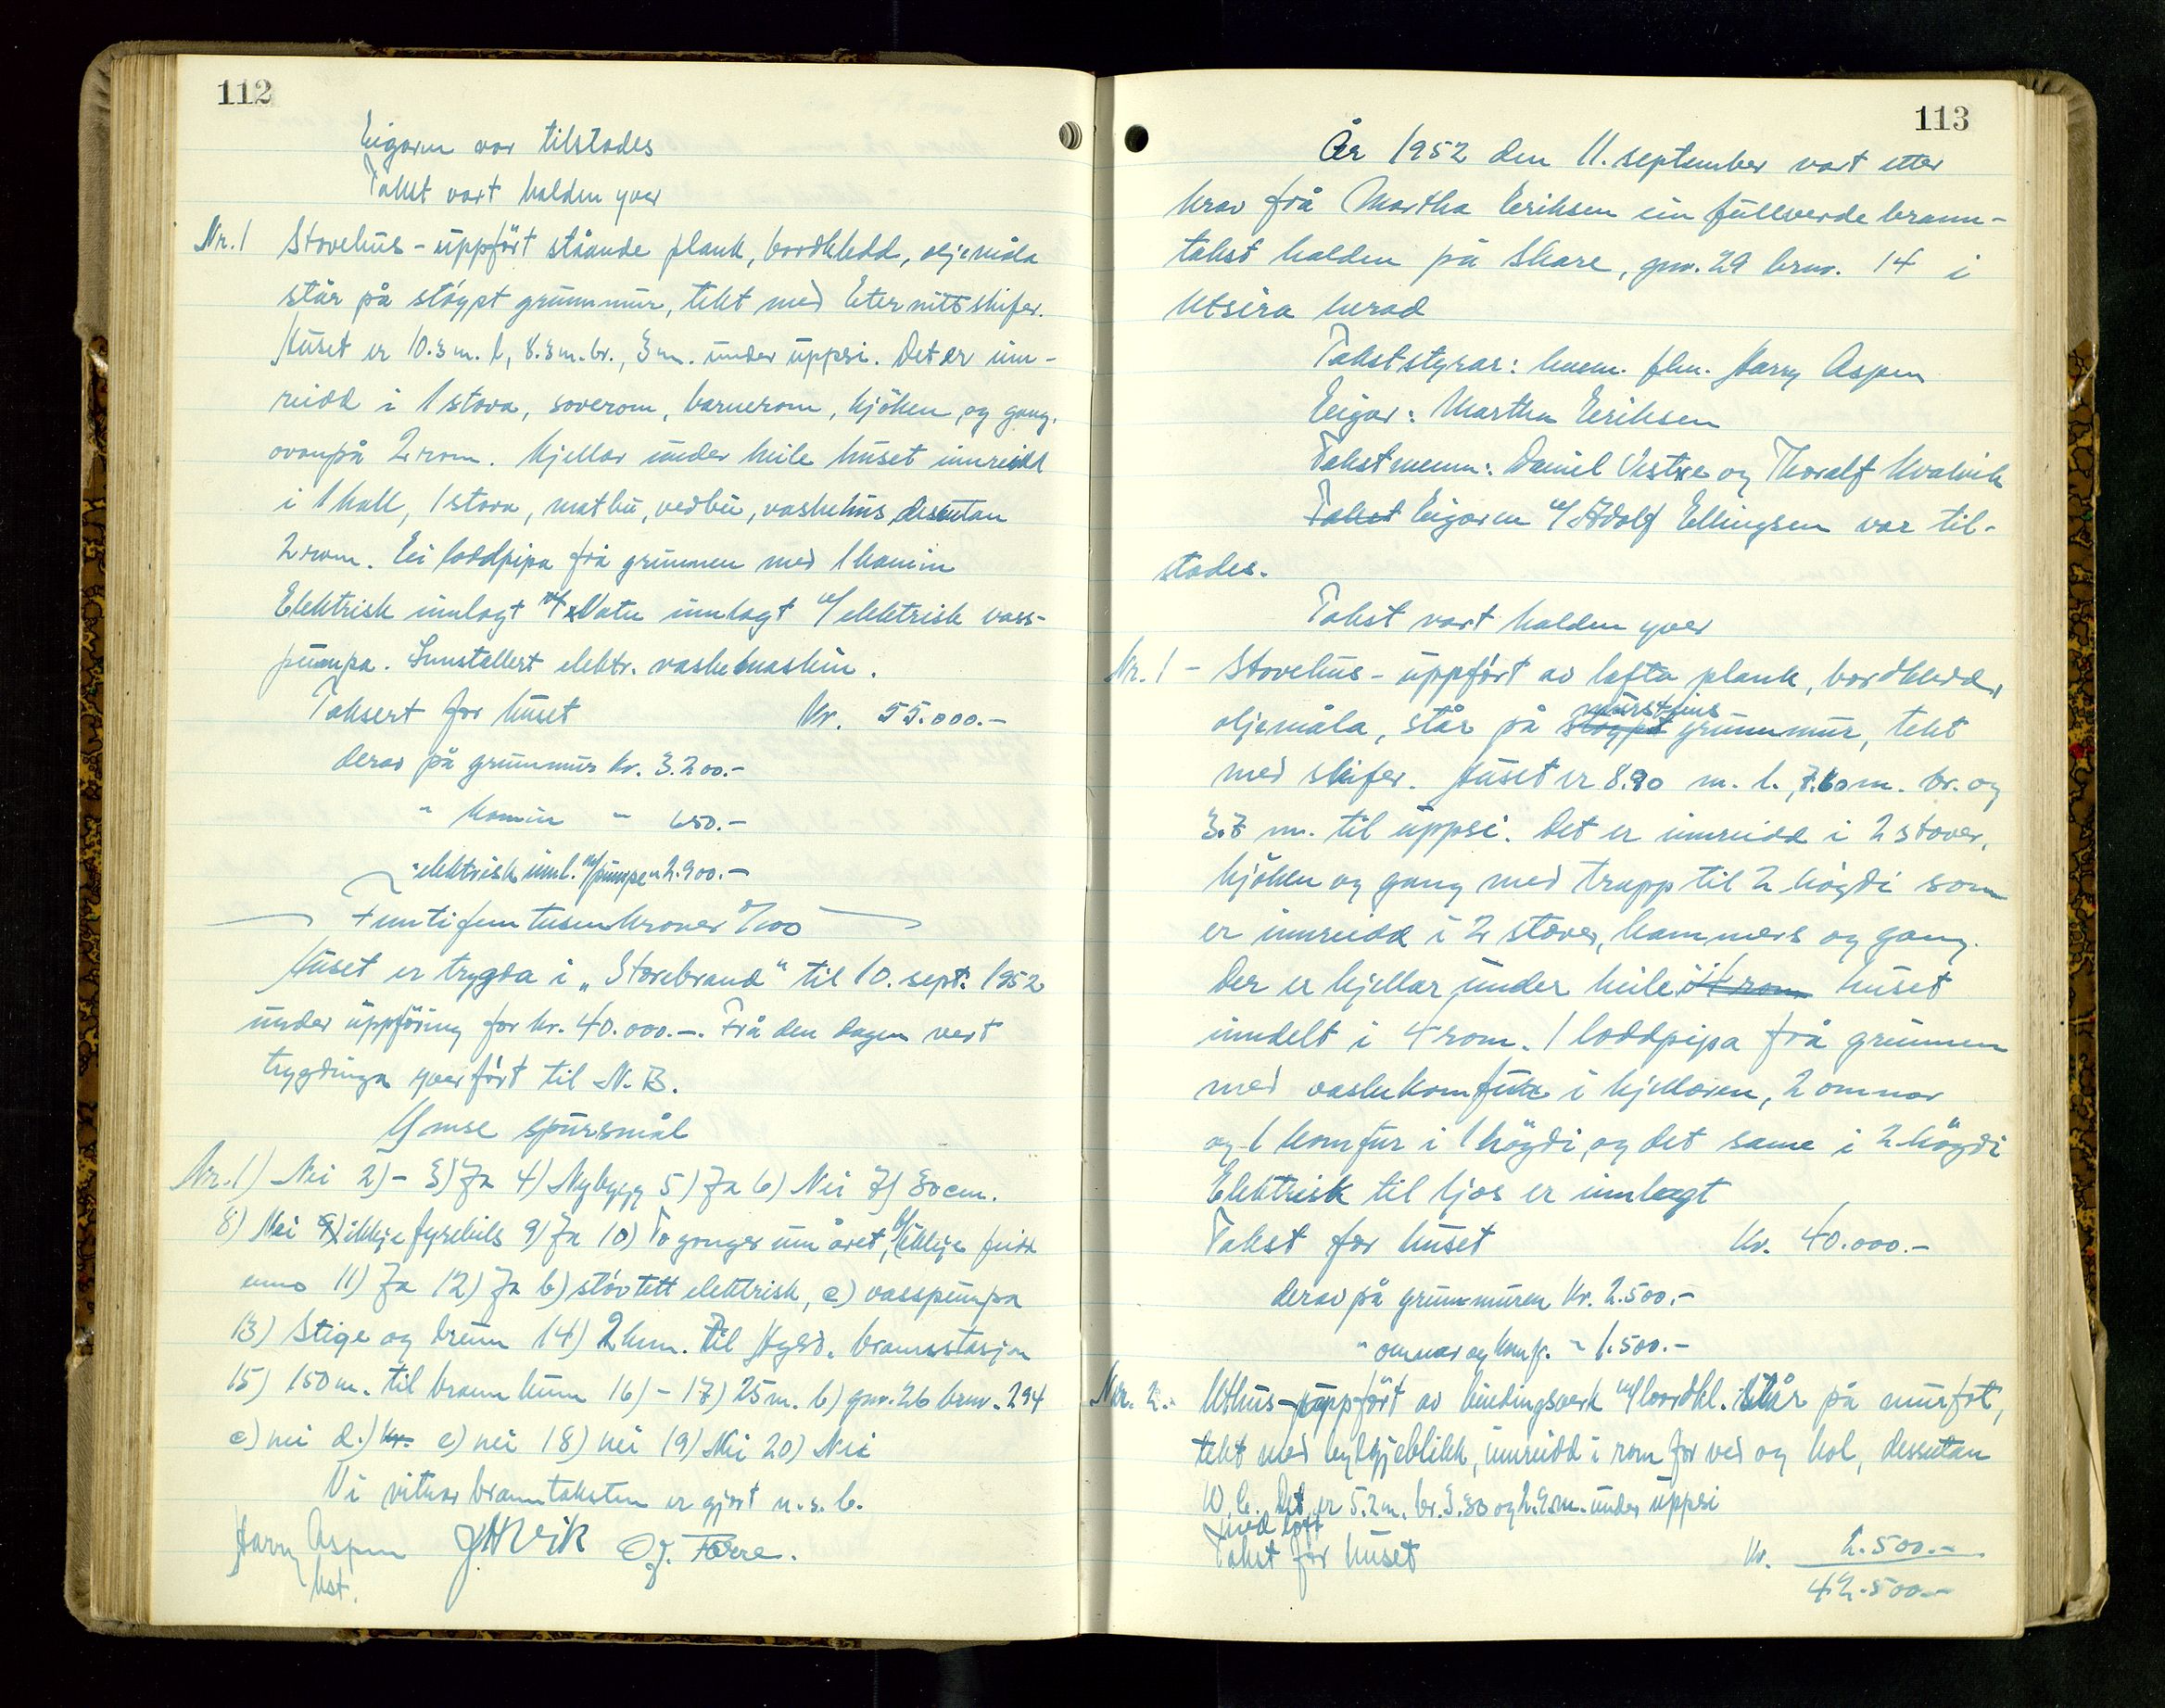 112
Eigaren var tilstades
Takst vart halden yver
Nr. 1 Stovehus - uppført ståande plank, bordkledd, oljemåla
står på støypt grunnmur, tekt med Eternittskifer.
Huset er 10.3 m. l, 8.3 m. br., 3 m. under uppsi. Det er inn-
reidd i 1 stova, soverom, barnerom, kjöken og gang.
ovanpå 2 rom. Kjellar under heile huset innreidd
i 1 hall, 1 stova, matbu, vedbu, vaskehus, dessutan
2 rom. Ei loddpipa frå grunnen med 1 kamin
Elektrisk innlagt Vatn innlagt m/ elektrisk vass-
pumpa. Innstallert elektr. vaskemaskin.
Taksert for huset Kr. 55.000.-
derav på grunnmur kr. 3.200.-
" kamin " 650.-
" elektrisk innl. m/pumpe " 2.900.-
Femtifemtusenkroner 0/100
Huset er trygda i „Storebrand" til 10. sept. 1952
under uppföring for kr. 40.000.-. Frå den dagen vert
trygdinga yverført til N. B.
Ymse spursmål
Nr. 1) Nei 2) - 3) Ja 4) Nybygg 5) Ja 6) Nei 7) 80 cm.
8) Nei ikkje fyrehus 9) Ja 10) To gonger um året, b) ikkje
enno 11) Ja 12) Ja b) støvtett elektrisk, c) vasspumpa
13) Stige og 14) 2 km. til brannstasjon
15) 150 m. til brannkum 16) - 17) 25 m. b) gnr. 26 bnr. 294
c) nei d.) kr. e) nei 18) nei 19) Nei 20) Nei
Vi vitnar branntaksten er gjort u. s. b.
Harry Aspen J. H. Vik O. J. Førre.
kst.
113
År 1952 den 11. september vart etter
krav frå Martha Eeriksen ein fullverde brann-
takst halden på Skare, gnr. 29 bnr. 14 i
Utsira herad
Takststyrar: lensm. flm. Harry Aspen
Eigar: Martha Eeriksen
Takstmenn: Daniel Vestre og Thoralf Kvalvik
Takst Eigaren v/ Adolf Ellingsen var til-
stades.
Takst vart halden yver
Nr. 1 - Stovehus - uppført av lafta plank, bordkledd,
murstains
oljemåla, står på støypt grunnmur, tekt
med skifer. Huset er 8.90 m. l., 7.60 m. br. og
3.7 m. til uppsi. Det er innreidd i 2 stover,
kjöken og gang med trapp til 2 högdi som
er innreidd i 2 stover, kammers og gang.
Der er kjellar under heile i 4 rom huset
inndelt i 4 rom. 1 loddpipa frå grunnen
med vaskekomfur i kjellaren, 2 omnar
og 1 komfur i 1 högdi, og det same i 2 högdi
Elektrisk til ljos er innlagt
Takst for huset Kr. 40.000.-
derav på grunnmuren Kr. 2.500.-
" omnar og komf. " 1.500.-
Nr. 2. Uthus - uppført av bindingsverk m/ bordkl. står på murfot,
tekt med bylgjeblikk, innreidd i rom for ved og kol, dessutan
W.C. Det er 5.2 m. br. 3.80 og 2.9 m. under uppsi
med loft
Takst for huset Kr. 2.500.-
42.500.-